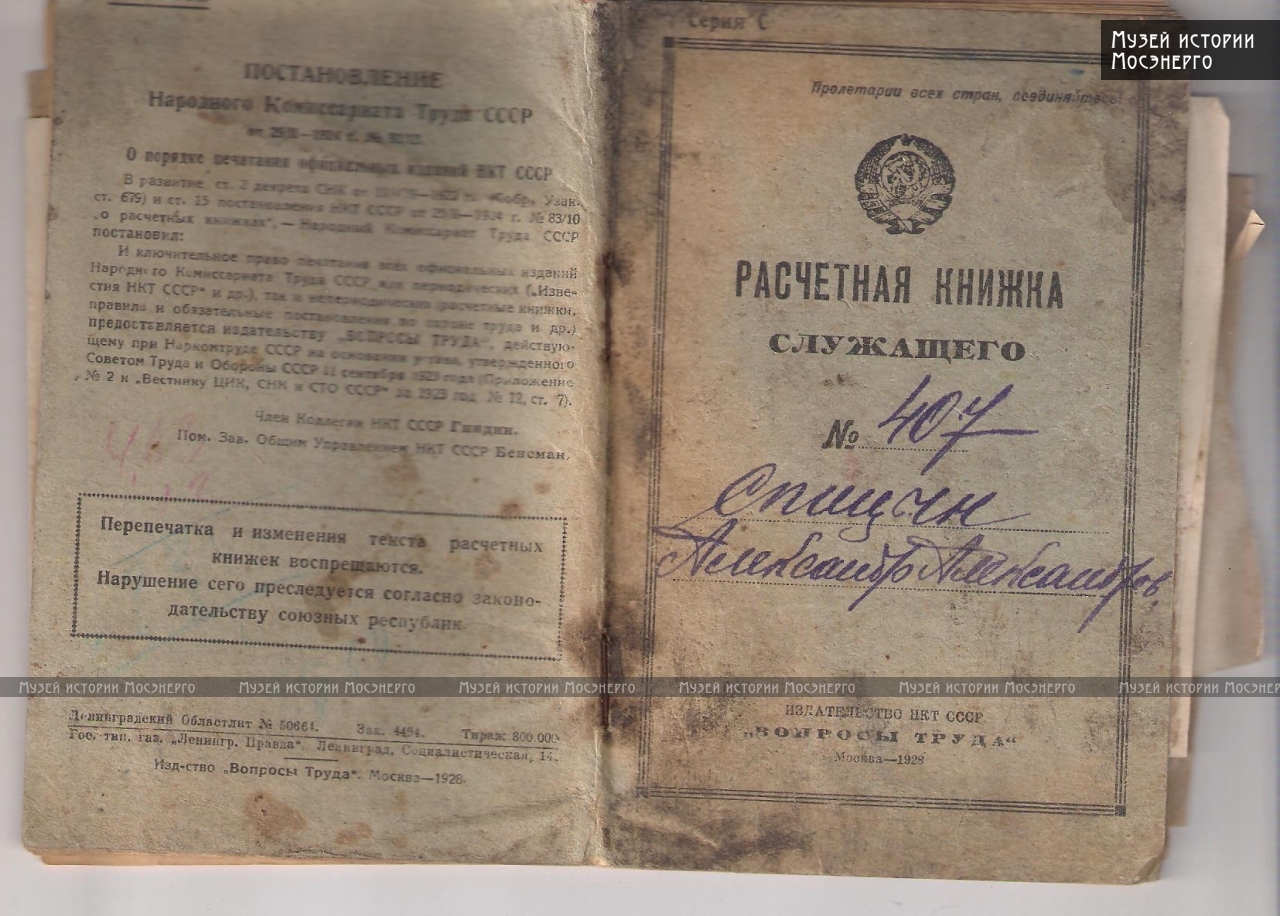 ПОСТАНОВЛЕНИЕ
Народного Комиссариата Труда СССР
О порядке печатания официальных изданий НКТ СССР
В развитие ст. 2 декрета СНК от „Собр. Узак.
ст. 679) и ст. 15 постановления НКТ СССР от 1924 г. № 83/10
„о расчетных книжках“, — Народный Комиссариат Труда СССР
постановил:
И ключительное право печатания всех официальных изданий
Народного Комиссариата Труда СССР, как периодических („Изве-
стия НКТ СССР“ и др.), так и непериодических (расчетные книжки,
правила и обязательные постановления по охране труда и др.)
предоставляется издательству „ВОПРОСЫ ТРУДА“, действую-
щему при Наркомтруде СССР на основании устава, утвержденного
Советом Труда и Обороны СССР 11 сентября 1923 года (Приложение
№ 2 к „Вестнику ЦИК, СНК и СТО СССР“ за 1923 год № 12, ст. 7).
Член Коллегии НКТ СССР Гиндин.
Пом. Зав. Общим Управлением НКТ СССР Бенсман.
Перепечатка и изменения текста расчетных
книжек воспрещаются.
Нарушение сего преследуется согласно законо-
дательству союзных республик.
Ленинградский Областлит № 50664. Зак. 4494. Тираж 800.000
Гос. тип. газ. „Ленингр. Правда“. Ленинград, Социалистическая, 14.
Изд-ство „Вопросы Труда“. Москва—1928.
Серия С
Пролетарии всех стран, соединяйтесь
РАСЧЕТНАЯ КНИЖКА
СЛУЖАЩЕГО
№ 407
Спицын
Александр Александров.
ИЗДАТЕЛЬСТВО НКТ СССР
„ВОПРОСЫ ТРУДА“
Москва—1928
Музей истории
Мосэнерго
Музей истории Мосэнерго Музей истории Мосэнерго Музей истории Мосэнерго Музей истории Мосэнерго Музей истории Мосэнерго Музей истории Мосэнерго